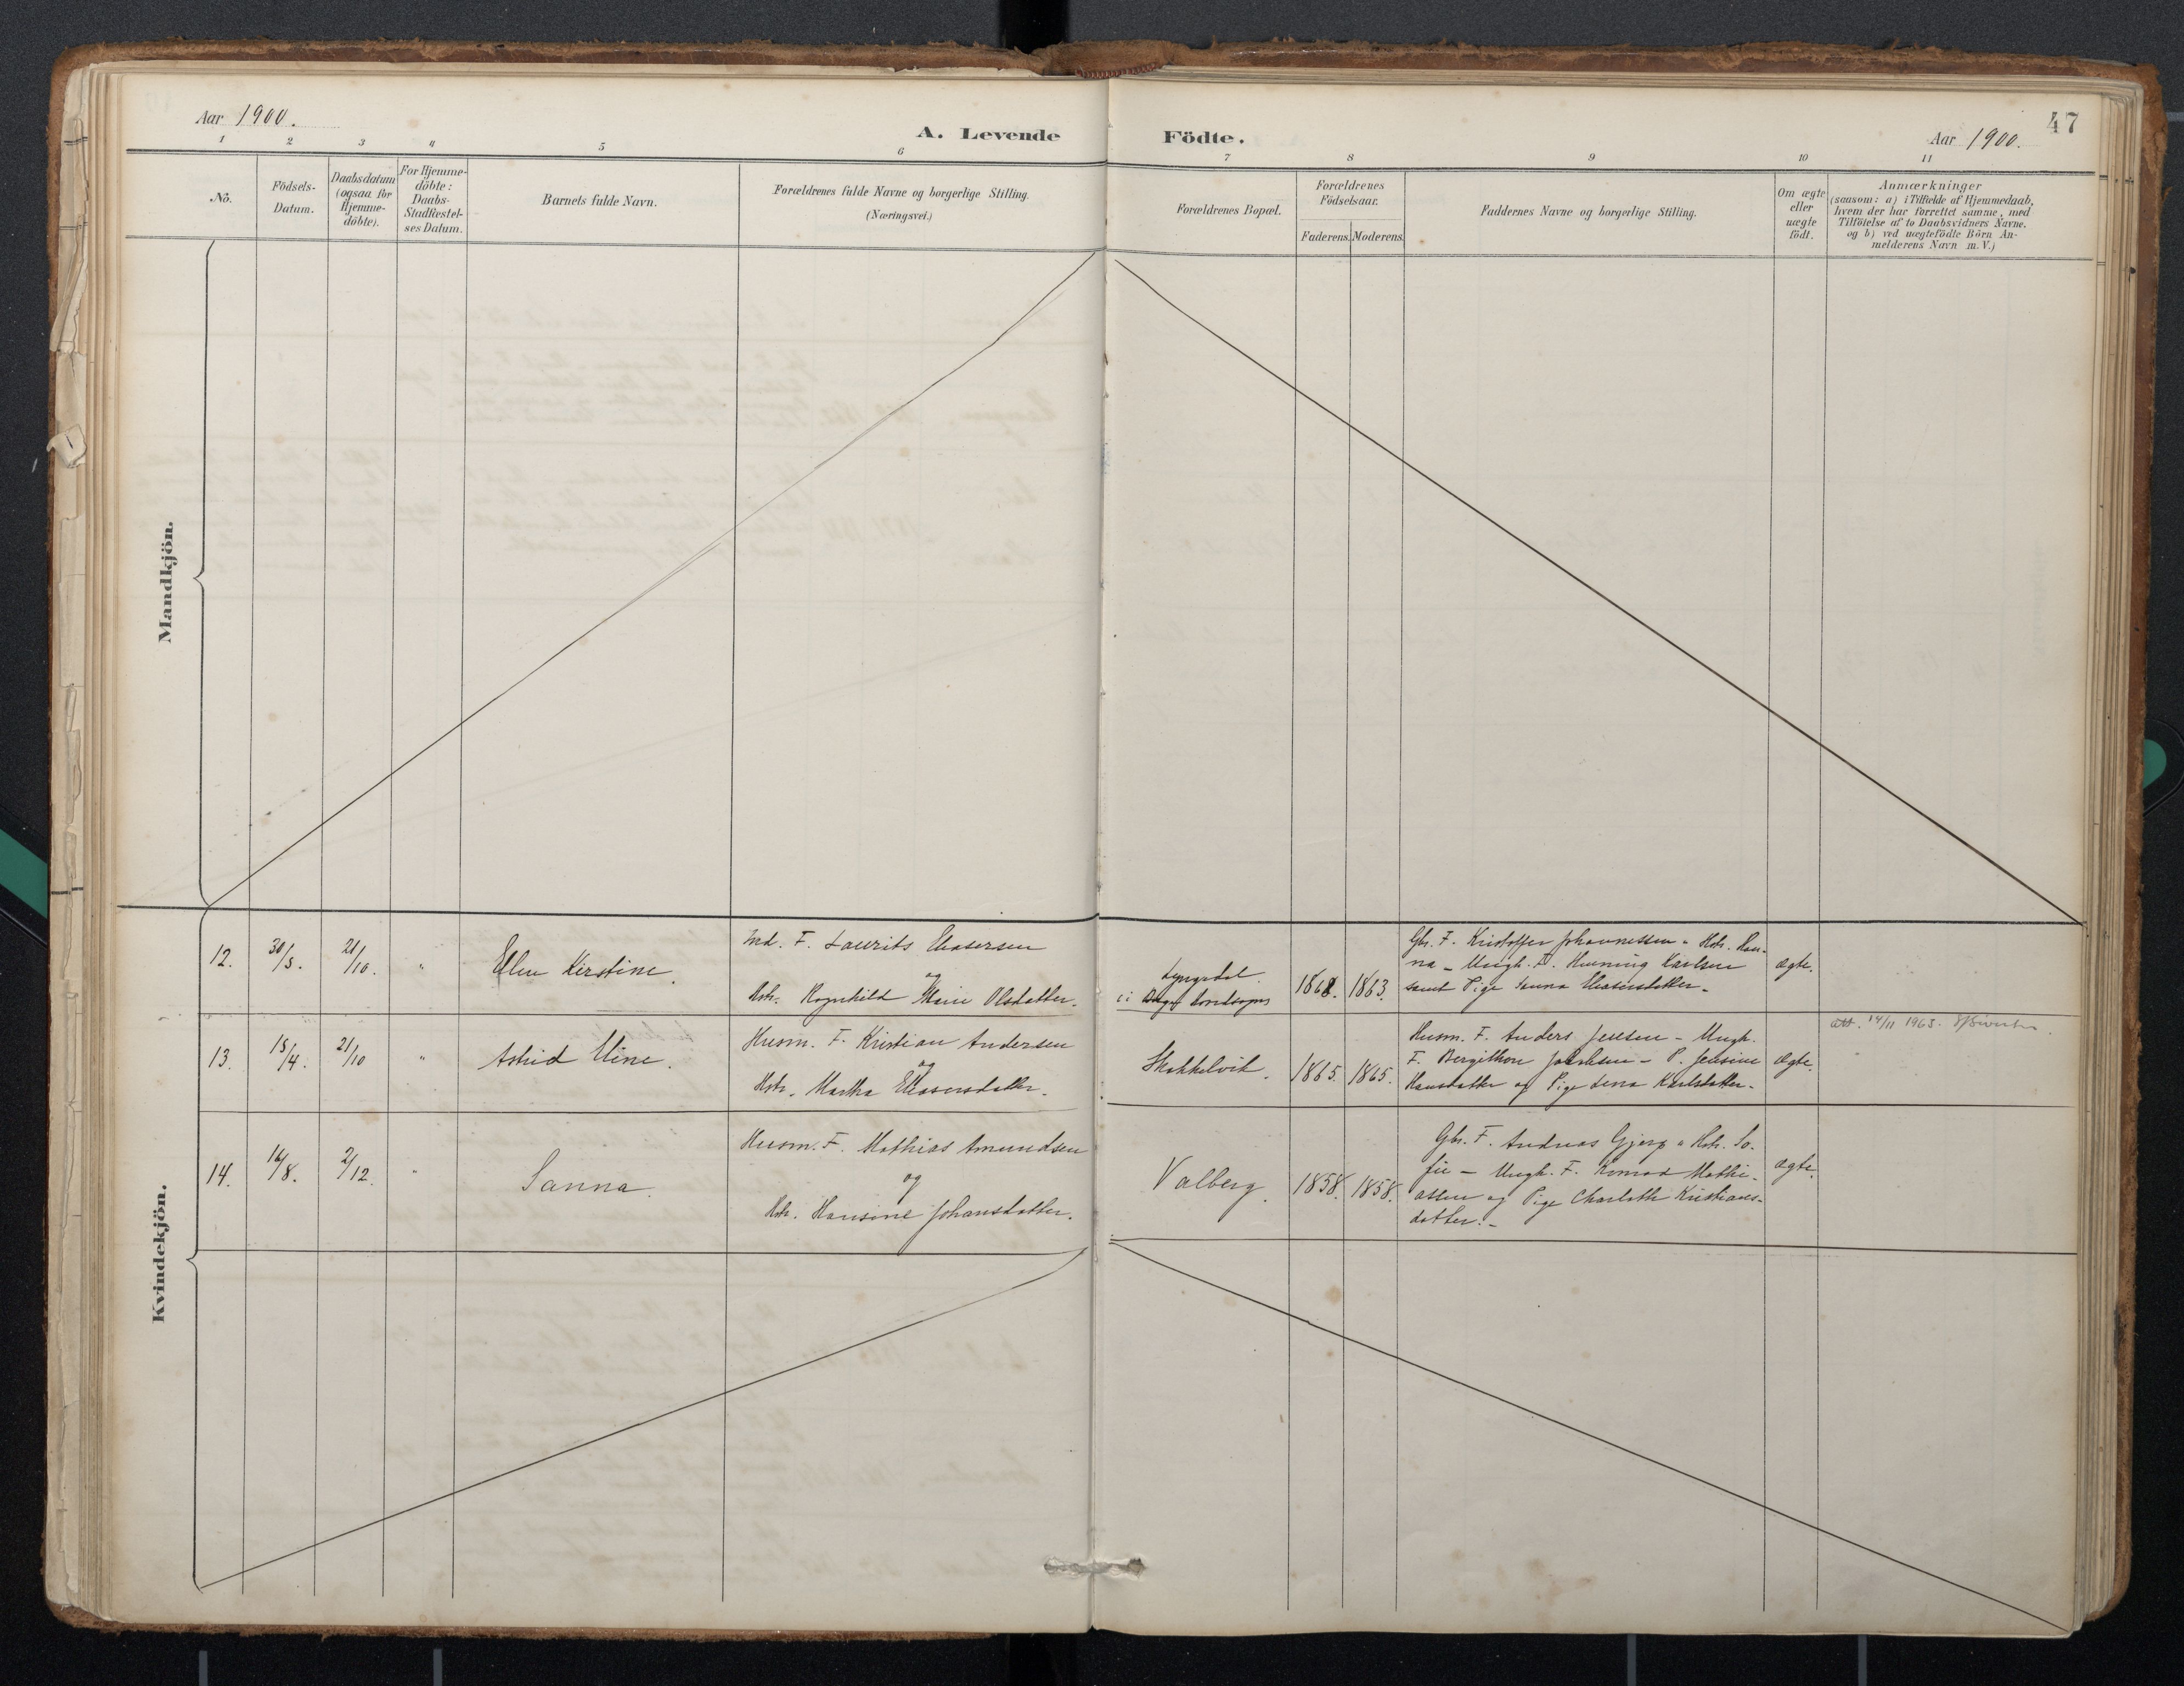 Aar 1900.
A. Levende Födte.
Aar 1900.
47
1 2 3 4 5 6 7 8 9 10 11
No.
Födsels-
Datum.
Daabsdatum
(ogsaa for
Hjemme-
döbte).
For Hjemme-
döbte:
Daabs-
Stadfæstel-
ses Datum.
Barnets fulde Navn.
Forældrenes fulde Navne og borgerlige Stilling.
(Næringsvei.)
Forældrenes Bopæl.
Forældrenes
Födselsaar.
Faderens. Moderens.
Faddernes Navne og borgerlige Stilling.
Om ægte
eller
uægte
födt.
Anmærkninger
(saasom: a) i Tilfælde af Hjemmedaab,
hvem der har forrettet samme, med
Tilföielse af to Daabsvidners Navne.
og b) ved uægtefödte Börn An-
melderens Navn m. V.)
Mandkjön.
Kvindekjön.
12.
30/5.
21/10.
"
Ellen Kirstine.
Ind. F. Laurits Eliasersen
og
Hstr. Ragnhild Marie Olsdatter.
Lyngedal
i Borge
1868. 1863.
Gbr. F. Kristoffer Johannessen - Hstr. Han-
na - Ungk. F. Henning Karlsen
samt Pige Sanna Eliasersdatter.
ægte.
13.
15/4.
21/10
"
Astrid Eline.
Husm. F. Kristian Andersen
og
Hstr. Martha Eliasersdatter.
Skakkelvik.
1865. 1865.
Husm. F. Anders Jensen - Ungk.
F. Bergithon Jakobsen - P. Jensine
Hansdatter og Pige Lena Karlsdatter.
ægte.
att. 14/11 1965.
14.
16/8.
2/12.
"
Sanna.
Husm. F. Mathias Amundsen
og
Hstr. Hansine Johansdatter.
Valberg.
1858. 1858.
Gbr. F. Andreas Gjerp - Hstr. So-
fie - Ungk. F. Konrad Mathi-
assen og Pige Charlotte Kristians-
datter.-
ægte.